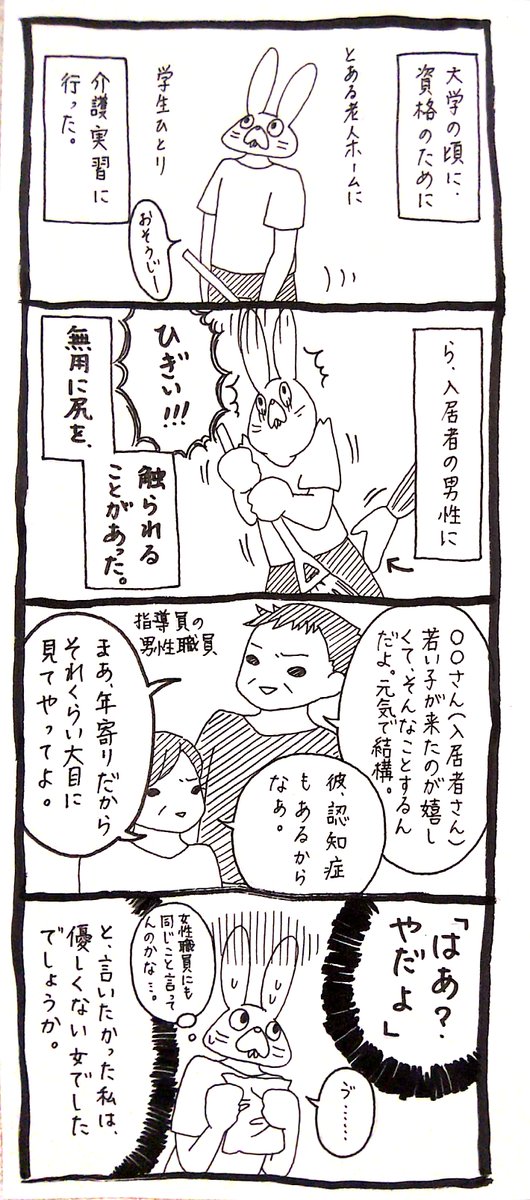 大学の頃に、
資格のために
とある老人ホームに
学生ひとり
介護実習に
行った。
おそうじー
ら、入居者の男性に
ひぎぃ!!!
無用に尻を、
触られる
ことがあった。
〇〇さん(入居者さん)
若い子が来たのが嬉し
くて、そんなことするん
だよ。元気で結構。
指導員の
男性職員
彼、認知症
もあるから
なぁ。
まあ、年寄りだから
それくらい大目に
見てやってよ。
「はあ?
やだよ」
ゔ……
女性職員にも
同じこと言って
んのかな…。
と、言いたかった私は、
優しくない女でした
でしょうか。